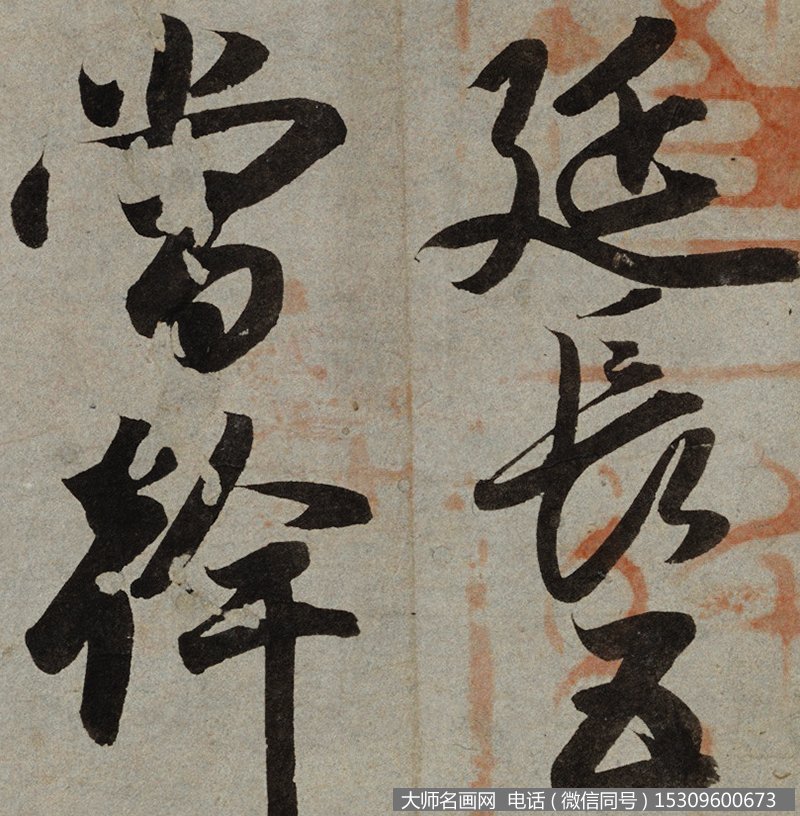 延長五
當幹
大师名画网 电话（微信同号）15309600673